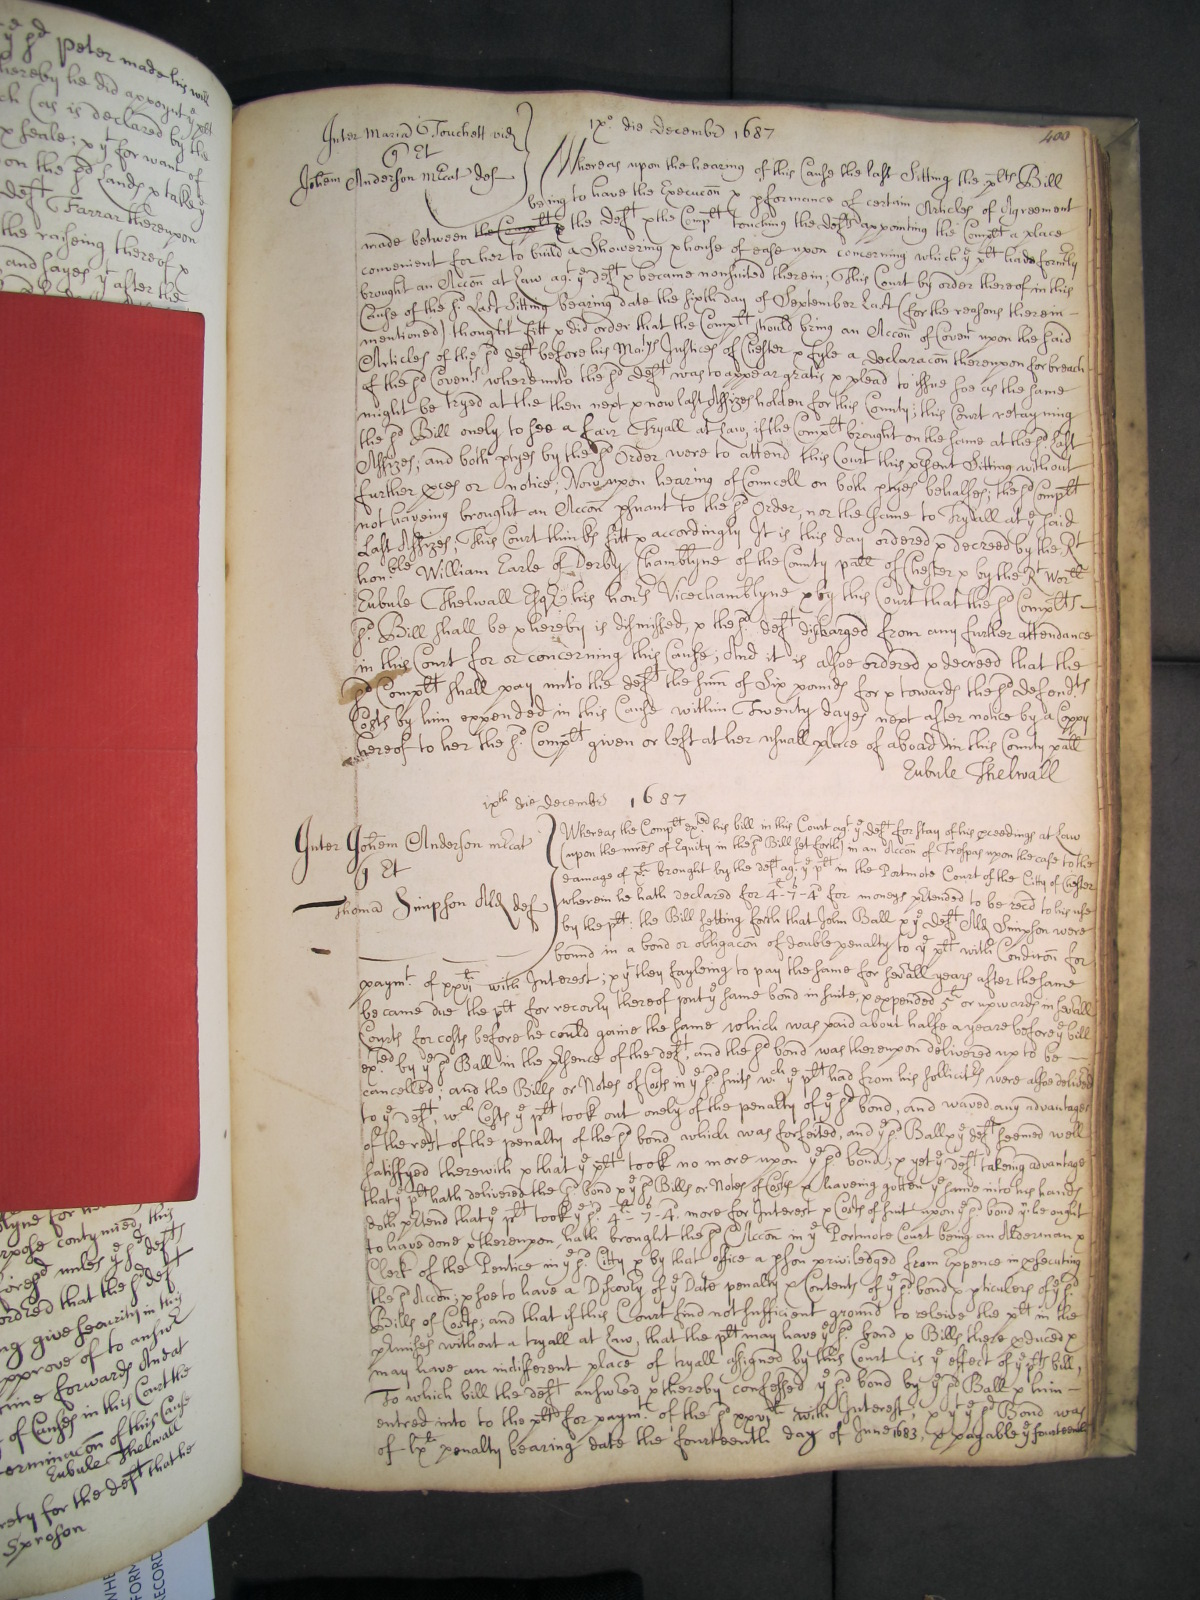 ye sd Peter made his will
hereby he did appoynt ye plt
ch (as is declared by the
x seale; x yt for want of
on the sd Lands x take ye
deft Farrar thereupon
the raiseing thereof x
and sayes yt after the
400
Inter Mariã Touchett vid
q Et
Johem Anderson mrcat def
ixo die decembr 1687
Whereas upon the hearing of this Cause the last Sitting the plts Bill
being to have the Execucon x pformance of certain Articles of Agreement
made between the Complt x the deft x the Complt touching the defts appointing the Complt a place
convenient for her to build a Showering x house of ease upon concerning which ye plt had formrly
brought an Accon at Law agt ye deft x became nonsuited therein, This Court by order thereof in this
Cause of the sd Last Sitting bearing date the sixth day of September last (for the reasons therein
mentioned) thought fitt x did order that the Complt should bring an Accon of Covent upon the said
Articles of the sd deft before his Matys Justices of Chester x fyle a declaracon thereupon for breach
of the sd Covents whereunto the sd deft was to appear gratis x plead to issue soe as the same
might be tryed at the then next x now last Assizes holden for this County; this Court retayning
the sd Bill onely to see a fair Tryall at Law, if the Complt brought on the same at the sd Last
Assizes, and both ptyes by the sd Order were to attend this Court this psent Sitting without
further pces or notice; Now upon hearing of Councell on both ptyes behalfes; the sd Complt
not haveing brought an Accon psuant to the sd Order, nor the same to Tryall at ye said
Last Assizes, This Court thinks fitt x accordingly It is this day ordered x decreed by the Rt
honble William Earle of Derby Chamblyne of the County pall of Chester x by the Rt Worll
Eubule Thelwall Esqr his honrs Vicechamblyne x by this Court that the sd Complts
sd Bill shall be x hereby is dismissed, x the sd deft discharged from any further attendance
in this Court for or concerning this Cause; And it is alsoe ordered x decreed that the
sd Complt shall pay unto the deft the sum of Six pounds for x towards the sd defendts
Costs by him expended in this Cause within Twenty dayes next after notice by a Coppy
hereof to her the sd Complt given or left at her usuall place of aboad in this County pall
Eubule Thelwall
ixth die decembr 1687
Inter Johem Anderson mrcat
q Et
Thomã Simpson Ald def
Whereas the Complt exed his bill in this Court agt ye deft for stay of his pceedings at Law
(upon the mires of Equity in the sd Bill set forth) in an Accon of Trespas upon the case to the
damage of brought by the deft agt ye plt in the Portmote Court of the Citty of Chester
wherein he hath declared for 4-7-4d for moneys ptended to be recd to his use
by the plt, the Bill setting forth that John Ball x ye deft Ald Simpson were
bound in a bond or obligacon of double penalty to ye plt with Condicon for
paymt of xxvili with Interest; x yt they fayleing to pay the same for sevrall years after the same
became due the plt for recovry thereof put ye same bond in suite, x expended 5l or upwards in sevrall
Courts for costs before he could gaine the same which was paid about halfe a yeare before ye bill
exed by ye sd Ball in the psence of the deft, and the sd bond was thereupon delivered up to be
cancelled; and the Bills or Notes of Costs in ye sd suits wch ye plt had from his sollicitrs were alsoe delived
to ye deft, wch Costs ye plt took out onely of the penalty of ye sd bond, and waved any advantages
of the rest of the penalty of the sd bond which was forfeited, and ye sd Ball x ye deft seemed well
satisfyed therewith x that ye plt took no more upon ye sd bond; x yet ye deft takeing advantage
that ye plt hath delivered the sd bond x ye sd Bills or Notes of Costs x haveing gotten ye same into his hands
doth ptend that ye plt took ye sd 4-7-4 more for Interest x Costs of suit upon ye sd bond yn he ought
to have done x thereupon hath brought the sd Accon in ye Portmote Court being an Alderman x
Clerk of the Pentice in ye sd Citty x by that office a pson priviledged from Expence in psecuting
the sd Accon; x soe to have a Discovry of ye Date penalty x Contents of ye sd bond x pticulers of ye sd
Bills of Costs; and that if this Court find not sufficient ground to releive the plt in the
pmises without a tryall at Law, that the plt may have ye sd bond x Bills there pduced x
may have an indifferent place of tryall assigned by this Court is ye effect of ye plts bill,
To which bill the deft answred x thereby confessed ye sd bond by ye sd Ball x him
entred into to the plt for paymt of the sd xxvili with Interest; x yt ye sd Bond was
of lxli penalty bearing date the fourteenth day of June 1683, x payable ye fourteenth
orpose contynued this
oresd unles ye sd defts
ordred that the sd deft
ng give security in this
pprove of to answr
time forwards And at
of Causes in this Court the
terminacon of this Cause
Eubule Thelwall
rety for the deft that he
Sproson
FORM
RECORD